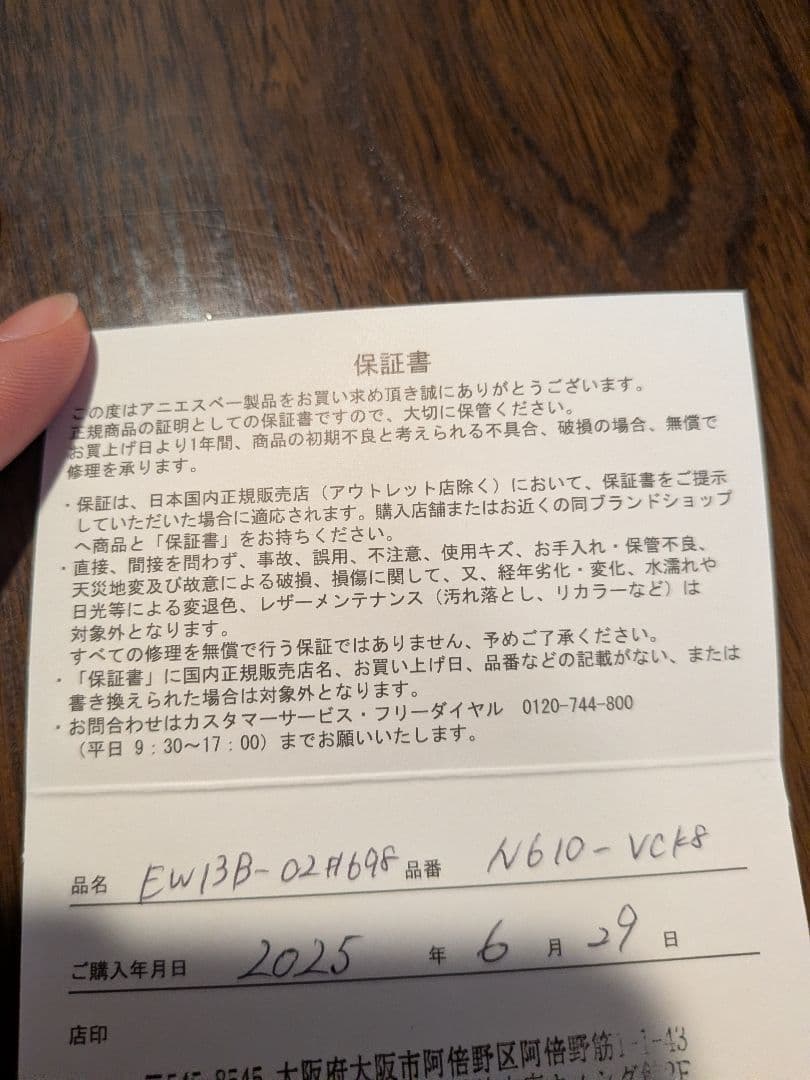 保証書
この度はアニエスベー製品をお買い求め頂き誠にありがとうございます。
正規商品の証明としての保証書ですので、大切に保管ください。
お買上げ日より1年間、商品の初期不良と考えられる不具合、破損の場合、無償で
修理を承ります。
・保証は、日本国内正規販売店（アウトレット店除く）において、保証書をご提示
していただいた場合に適応されます。購入店舗またはお近くの同ブランドショップ
へ商品と「保証書」をお持ちください。
・直接、間接を問わず、事故、誤用、不注意、使用キズ、お手入れ・保管不良、
天災地変及び故意による破損、損傷に関して、又、経年劣化・変化、水濡れや
日光等による変退色、レザーメンテナンス（汚れ落とし、リカラーなど）は
対象外となります。
すべての修理を無償で行う保証ではありません、予めご了承ください。
・「保証書」に国内正規販売店名、お買い上げ日、品番などの記載がない、または
書き換えられた場合は対象外となります。
・お問合わせはカスタマーサービス・フリーダイヤル 0120-744-800
（平日 9：30～17：00）までお願いいたします。
品名 EW13B-02H698 品番 N610-VCK8
ご購入年月日 2025 年 6 月 29 日
店印
〒545-8545 大阪府大阪市阿倍野区阿倍野筋1-1-43